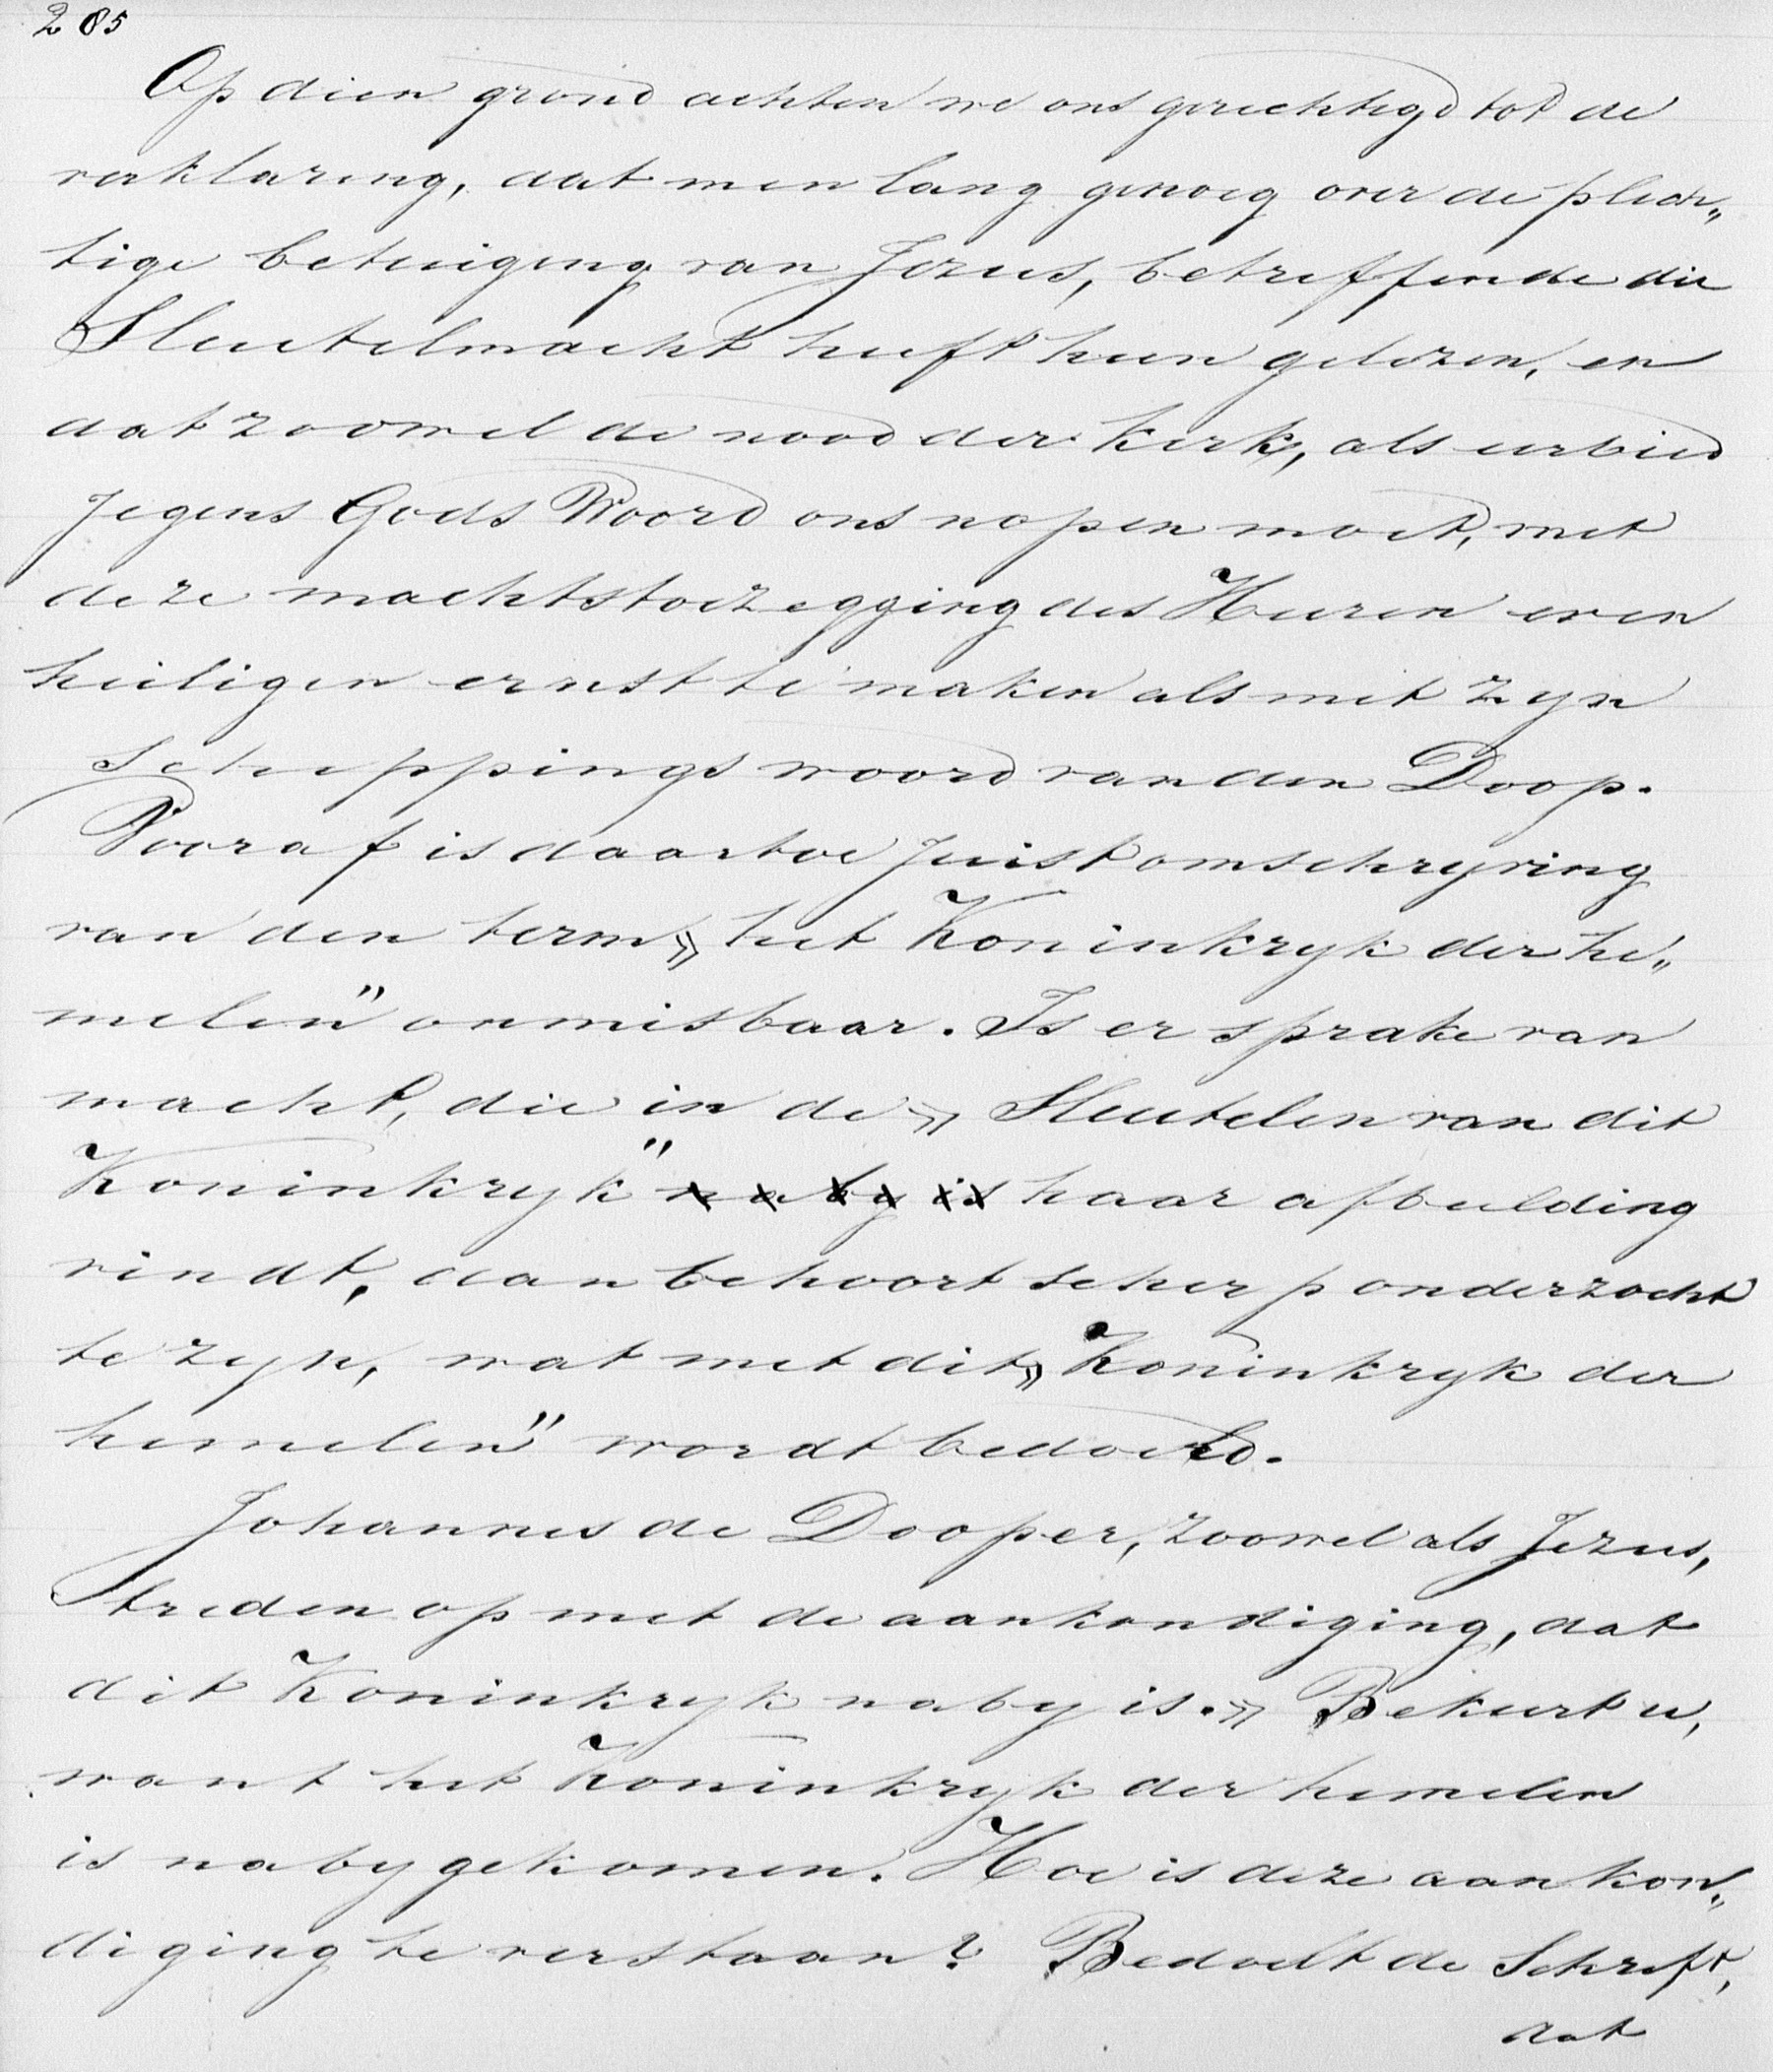 285
Op dien grond achten we ons gerechtigd tot de
verklaring, dat men lang genoeg over de plech„
tige betuiging van Jezus, betreffende die
Sleutelmacht heeft heen gelezen, en
dat zoowel de nood der kerk, als eerbied
jegens Gods Woord ons nopen moet, met
deze machtstoezegging des Heeren even
heiligen ernst te maken als met zyn
scheppingswoord van den Doop.
Vooraf is daartoe juist omschryving
van den term „het Koninkryk der he„
melen” onmisbaar. Is er sprake van
macht, die in de „Sleutelen van dit
Koninkryk” ~~naby is~~ haar afbeelding
vindt, dan behoort scherp onderzocht
te zyn, wat met dit „Koninkryk der
hemelen” wordt bedoeld.
Johannes de Dooper, zoowel als Jezus,
treden op met de aankondiging, dat
dit Koninkryk naby is. „Bekeert u,
want het Koninkryk der hemelen
is naby gekomen. Hoe is deze aankon„
diging te verstaan? Bedoelt de Schrift,
dat